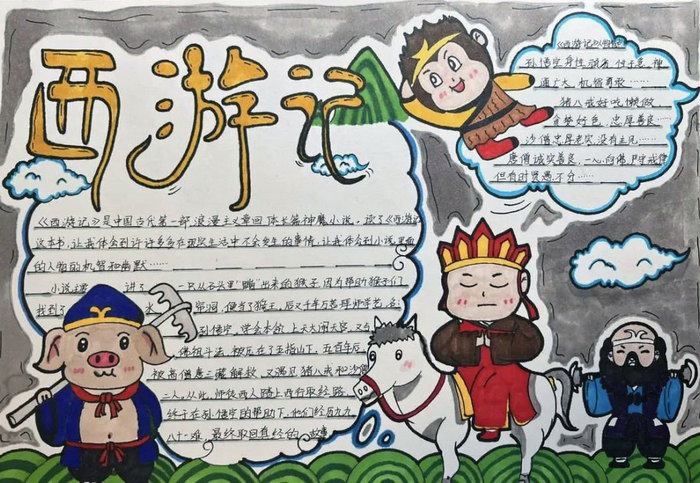 西游记
《西游记》是中国古代第一部浪漫主义章回体长篇神魔小说，读了《西游记》
这本书，让我体会到许许多多在现实生活中不会发生的事情，让我体会到小说里面
的人物的机智和幽默……
小说 讲了 一只从石头里蹦出来的猴子，因为帮助猴子们
找到了 水 洞，便当了猴王，后又千辛万苦拜师学艺，
孙悟空，学会本领，上天大闹天宫，又
佛祖斗法，被压在了五指山下，五百年后
被高僧唐三藏解救，又遇见猪八戒和沙僧
二人，从此，师徒四人踏上西行取经路，
终于在孙悟空的帮助下，他们经历九九
八十一难，最终取回真经的 故事
《西游记》
孙悟空身体 神
通广大，机智勇敢……
猪八戒好吃懒做
贪婪好色，忠厚善良……
沙僧忠厚老实，没有主见……
唐僧诚实善良，一心向佛
但有时贤愚不分……